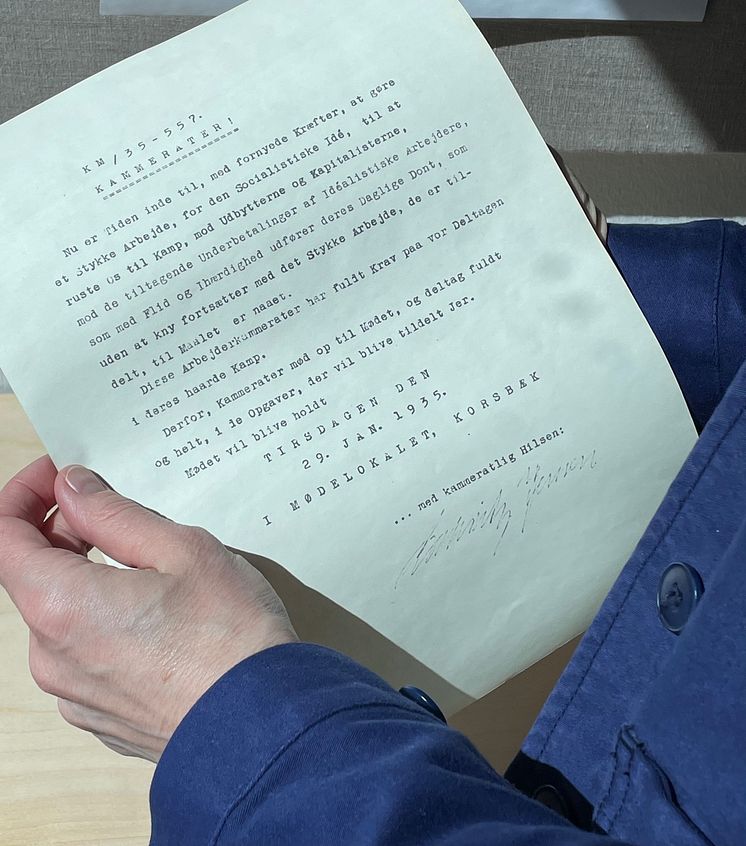 KM/35-557.
KAMMERATER!
Nu er Tiden inde til, med fornyede Kræfter, at gøre
et Stykke Arbejde, for den Socialistiske Idé, til at
ruste os til Kamp, mod Udbytterne og Kapitalisterne,
mod de tiltagende Underbetalinger af Idéalistiske Arbejdere,
som med Flid og Ihærdighed udfører deres Daglige Dont, som
uden at kny fortsætter med det Stykke Arbejde, de er til-
delt, til Maalet er naaet.
Disse Arbejderkammerater har fuldt Krav paa vor Deltagen
i deres haarde Kamp.
Derfor, Kammerater mød op til Mødet, og deltag fuldt
og helt, i de Opgaver, der vil blive tildelt Jer.
Mødet vil blive holdt
TIRSDAGEN DEN
29. JAN. 1935.
I MØDELOKALET, KORSBÆK
... med kammeratlig Hilsen:
Jensen